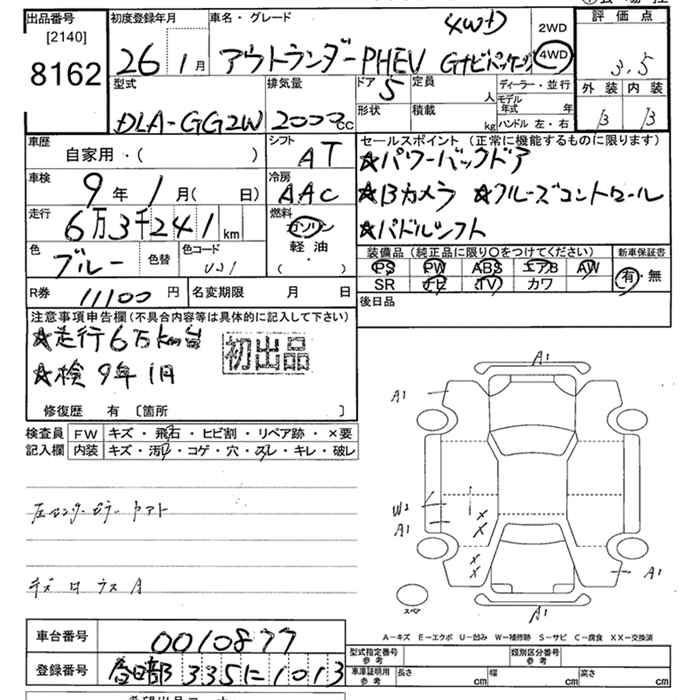 出品番号 初度登録年月 車名・グレード 4WD 2WD 評価点
[2140]
8162 26年 1月 アウトランダーPHEV Gナビパッケージ 4WD 3.5
型式 排気量 ドア 5 定員 人 ディーラー・並行 外装 内装
DLA-GG2W 2000cc 形状 積載 kg モデル年式 年 ハンドル 左・右 B B
車歴 シフト セールスポイント (正常に機能するものに限ります)
自家用・( ) AT ☆パワーバックドア
車検 9年 1月( 日) 冷房 AAC ☆Bカメラ ☆クルーズコントロール
走行 6万3千241km 燃料 ガソリン ☆パドルシフト
色 ブルー 色替 色コード 軽油 ・( ) 装備品 (純正品に限り○をつけてください) 新車保証書
PS PW ABS エアB AW 有・無
R券 11100円 名変期限 月 日 SR ナビ TV カワ
後日品
注意事項申告欄(不具合内容等は具体的に記入して下さい)
☆走行6万km台 初出品
☆検 9年1月
修復歴 有 [箇所 ]
検査員 FW キズ・飛石・ヒビ割・リペア跡・×要
記入欄 内装 キズ・汚れ・コゲ・穴・スレ・キレ・破レ
A1
A1
W2
A1
A1
A1
スペア
A-キズ E-エクボ U-凹み W-補修跡 S-サビ C-腐食 XX-交換済
車台番号 0010877 型式指定番号 参考 類別区分番号 参考
登録番号 春日部 335に1013 車庫証明用 参考 長さ cm 幅 cm 高さ cm